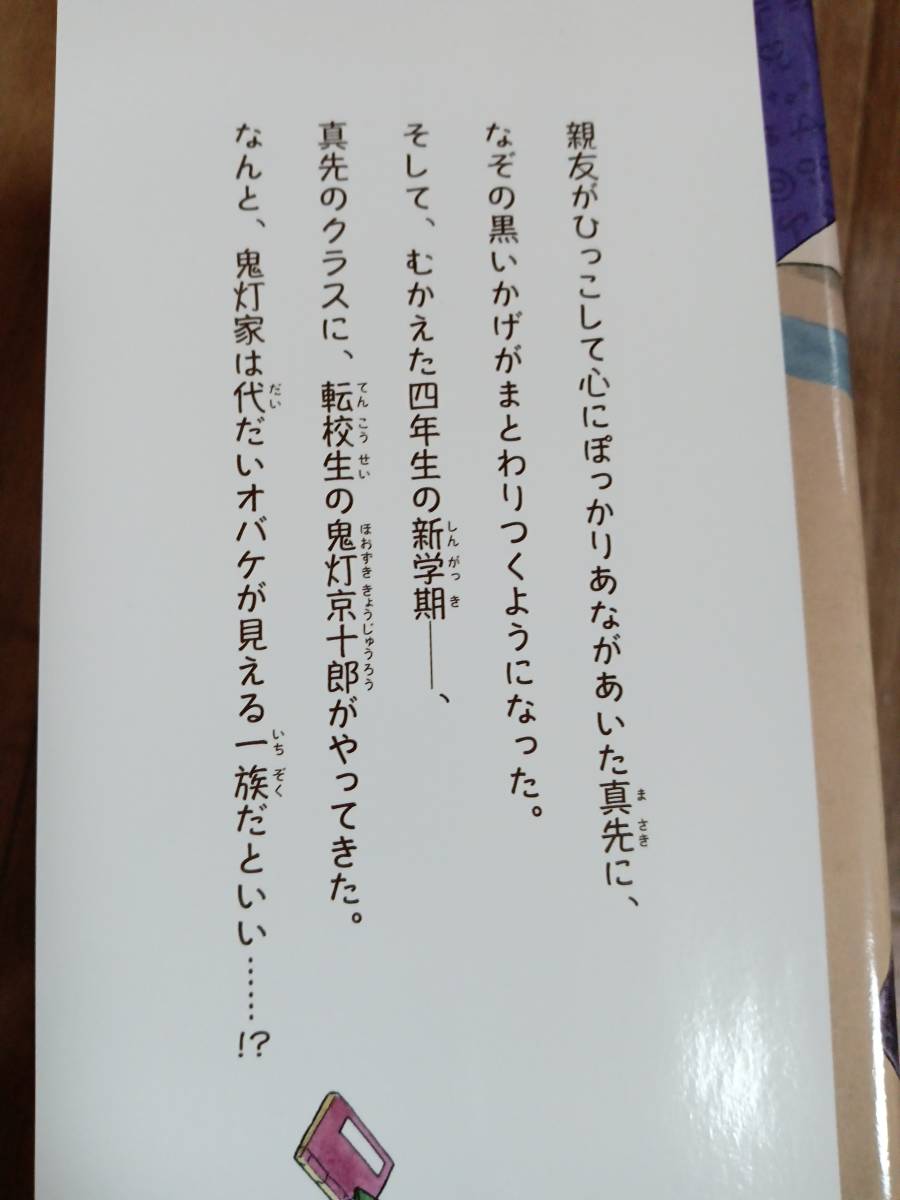 親友がひっこして心にぽっかりあながあいた真先に、
なぞの黒いかげがまとわりつくようになった。
そして、むかえた四年生の新学期――、
真先のクラスに、転校生の鬼灯京十郎がやってきた。
なんと、鬼灯家は代だいオバケが見える一族だといい……!?